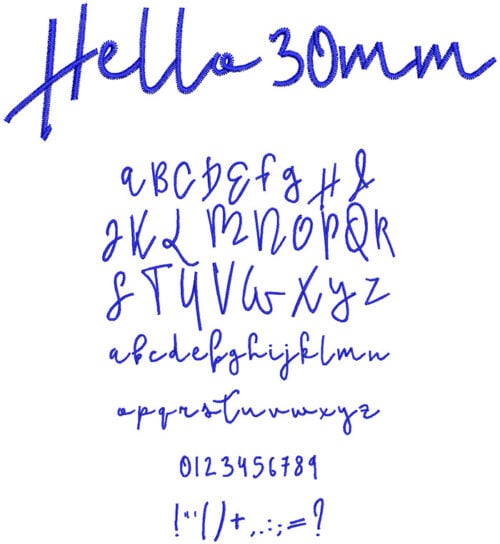 Hello 30mm
a B C D E F G H I
J K L M N O P Q R
S T U V W X Y Z
a b c d e f g h i j k l m n
o p q r s t u v w x y z
0 1 2 3 4 5 6 7 8 9
! " ' ( ) + , . : ; = ?